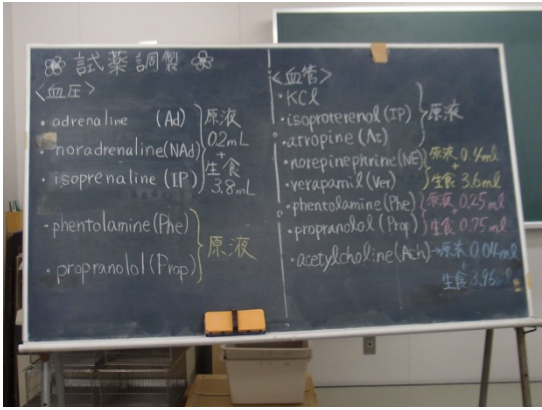 試薬調製
<血圧>
・adrenaline (Ad)
・noradrenaline(NAd)
・isoprenaline (IP)
原液
0.2mL
+
生食
3.8mL
・phentolamine(Phe)
・propranolol(Prop)
原液
<血管>
・KCl
・isoproterenol(IP)
・atropine (At)
原液
・norepinephrine(NE)
・verapamil(Ver)
原液 0.4ml
+
生食 3.6ml
・phentolamine(Phe)
・propranolol(Prop)
原液 0.25ml
+
生食 0.75ml
・acetylcholine(Ach)→原液 0.04ml
+
生食 3.96ml